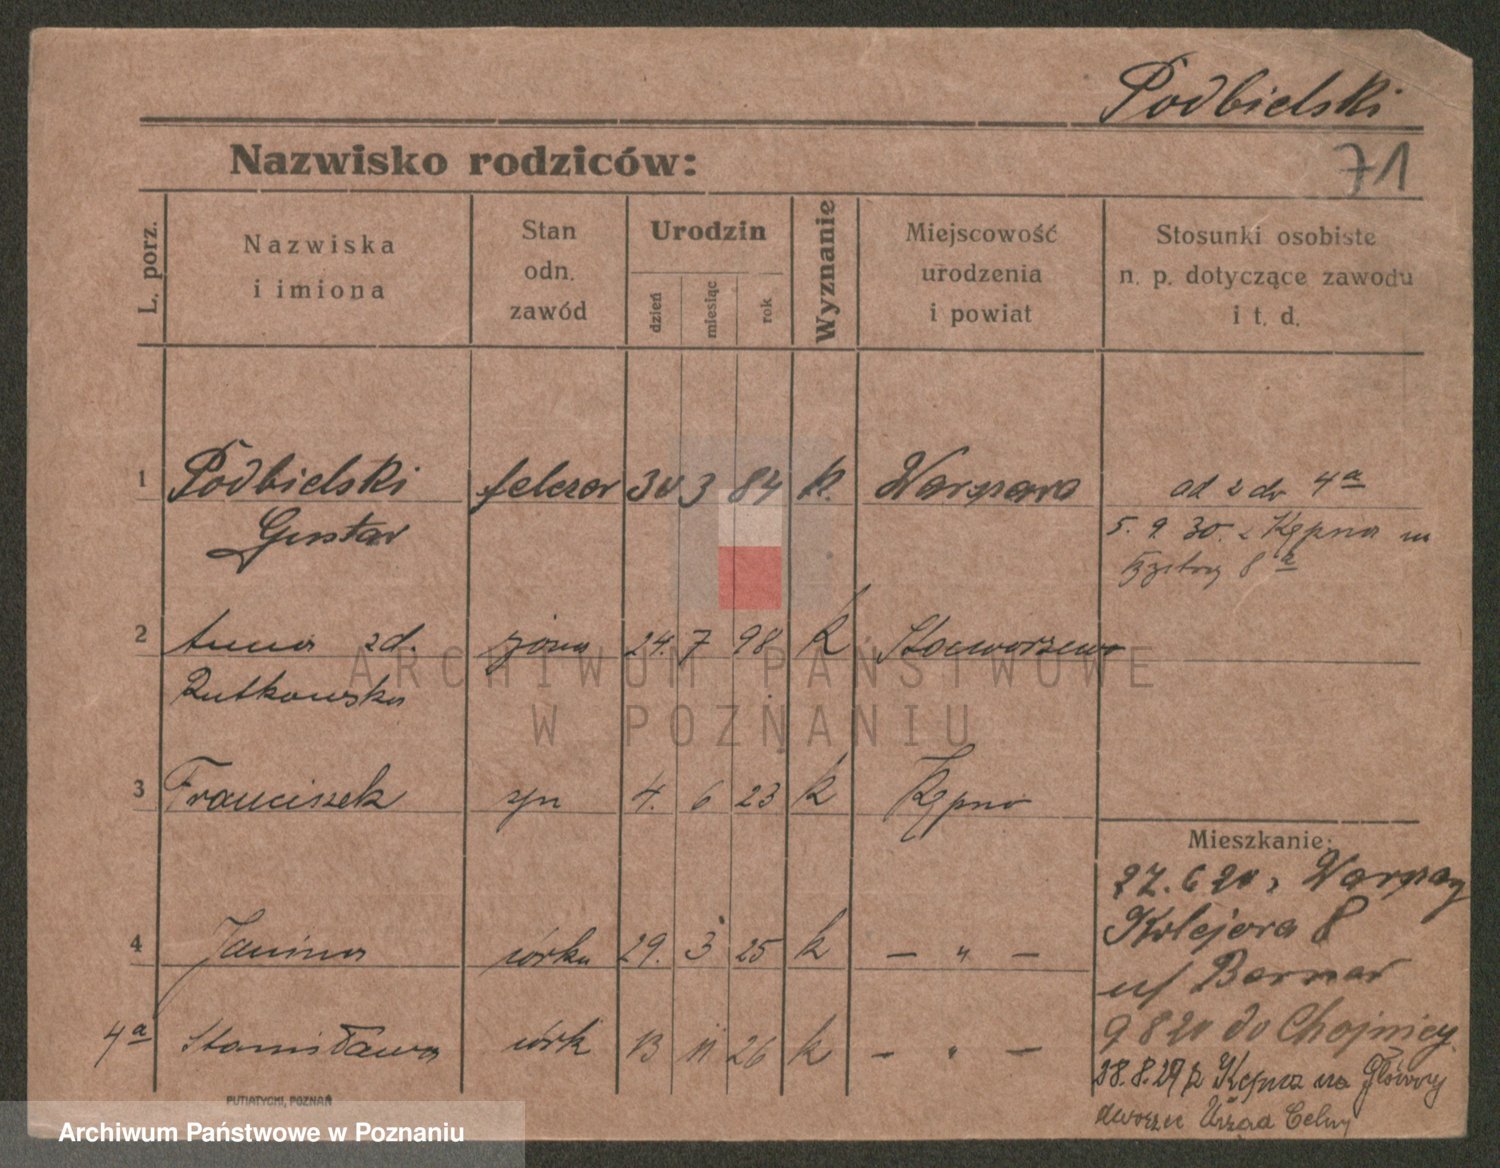 Podbielski
Nazwisko rodziców:
71
L. porz.
Nazwiska
i imiona
Stan
odn.
zawód
Urodzin
dzień
miesiąc
rok
Wyznanie
Miejscowość
urodzenia
i powiat
Stosunki osobiste
n. p. dotyczące zawodu
i t. d.
1 Podbielski felczer 30 3 84 k. Warszawa
Gustav
od 2 do 4a
5. 9 30. z Kępna
8a
2 Anna zd. żona 24. 7 98 k
Rutkowska
3 Franciszek syn 4. 6 23 k Kępno
4 Janina córka 29. 3 25 k — " —
4a Stanisława córk 13 11 26 k — " —
Mieszkanie:
27. 6 20 z Warszawy
Kolejowa 8
u/
9 8 20 do Chojnicy
28.8.29 z Kępna na Główny
dworzec Urząd Celny
PUTIATYCKI, POZNAŃ
ARCHIWUM PAŃSTWOWE
W POZNANIU
Archiwum Państwowe w Poznaniu